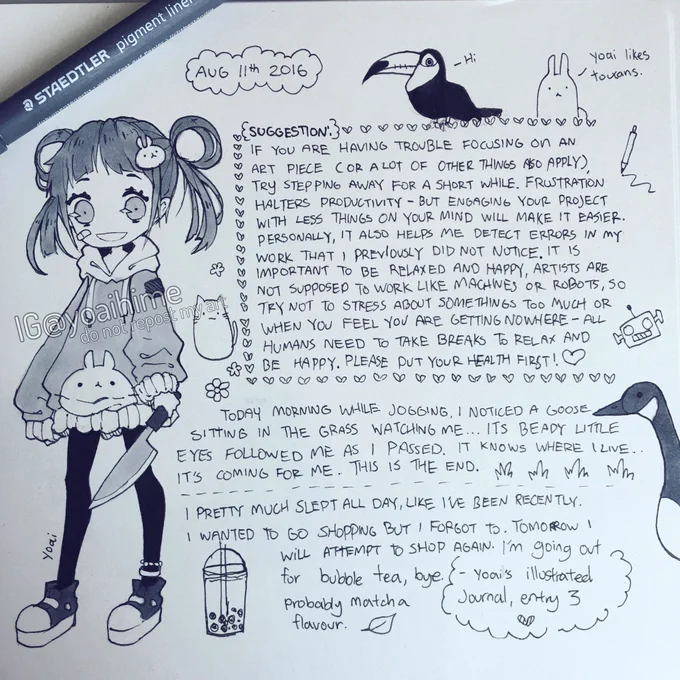 STAEDTLER pigment liner
AUG 11th 2016
- Hi
yoai likes
toucans.
{SUGGESTION:}
IF YOU ARE HAVING TROUBLE FOCUSING ON AN
ART PIECE (OR A LOT OF OTHER THINGS ALSO APPLY),
TRY STEPPING AWAY FOR A SHORT WHILE. FRUSTRATION
HALTERS PRODUCTIVITY - BUT ENGAGING YOUR PROJECT
WITH LESS THINGS ON YOUR MIND WILL MAKE IT EASIER.
PERSONALLY, IT ALSO HELPS ME DETECT ERRORS IN MY
WORK THAT I PREVIOUSLY DID NOT NOTICE. IT IS
IMPORTANT TO BE RELAXED AND HAPPY, ARTISTS ARE
NOT SUPPOSED TO WORK LIKE MACHINES OR ROBOTS, SO
TRY NOT TO STRESS ABOUT SOMETHINGS TOO MUCH OR
WHEN YOU FEEL YOU ARE GETTING NOWHERE - ALL
HUMANS NEED TO TAKE BREAKS TO RELAX AND
BE HAPPY. PLEASE PUT YOUR HEALTH FIRST! ♡
IG@yoaihime
do not repost my art
TODAY MORNING WHILE JOGGING, I NOTICED A GOOSE
SITTING IN THE GRASS WATCHING ME... ITS BEADY LITTLE
EYES FOLLOWED ME AS I PASSED. IT KNOWS WHERE I LIVE..
IT'S COMING FOR ME. THIS IS THE END.
I PRETTY MUCH SLEPT ALL DAY, LIKE I'VE BEEN RECENTLY.
I WANTED TO GO SHOPPING BUT I FORGOT TO. TOMORROW I
WILL ATTEMPT TO SHOP AGAIN. I'm going out
for bubble tea, bye.
probably matcha
flavour.
- yoai's illustrated
Journal, entry 3
yoai